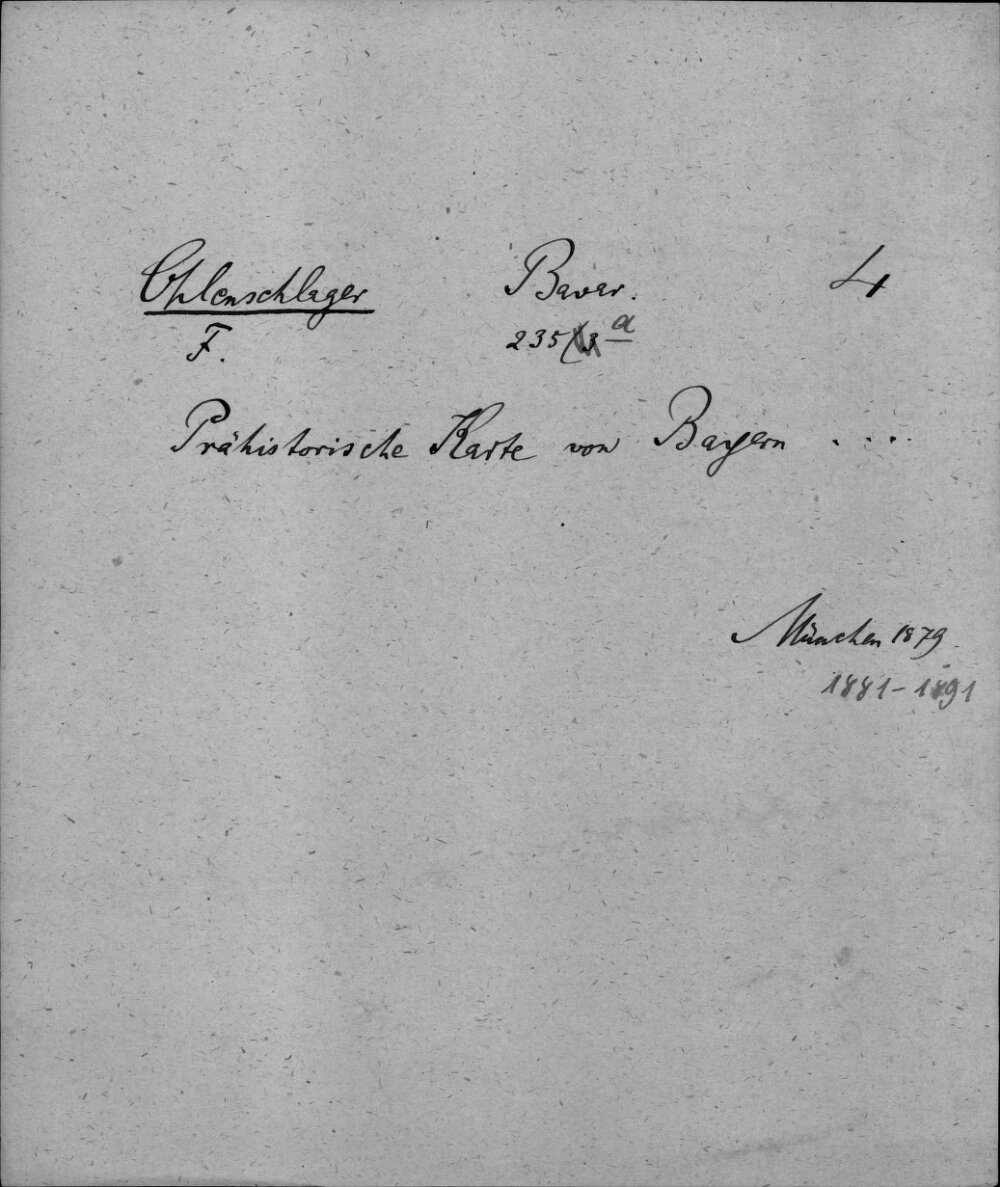 Ohlenschlager Bavar. 4
F. 235/3 a
Prähistorische Karte von Bayern ....
München 1879.
1881-1891